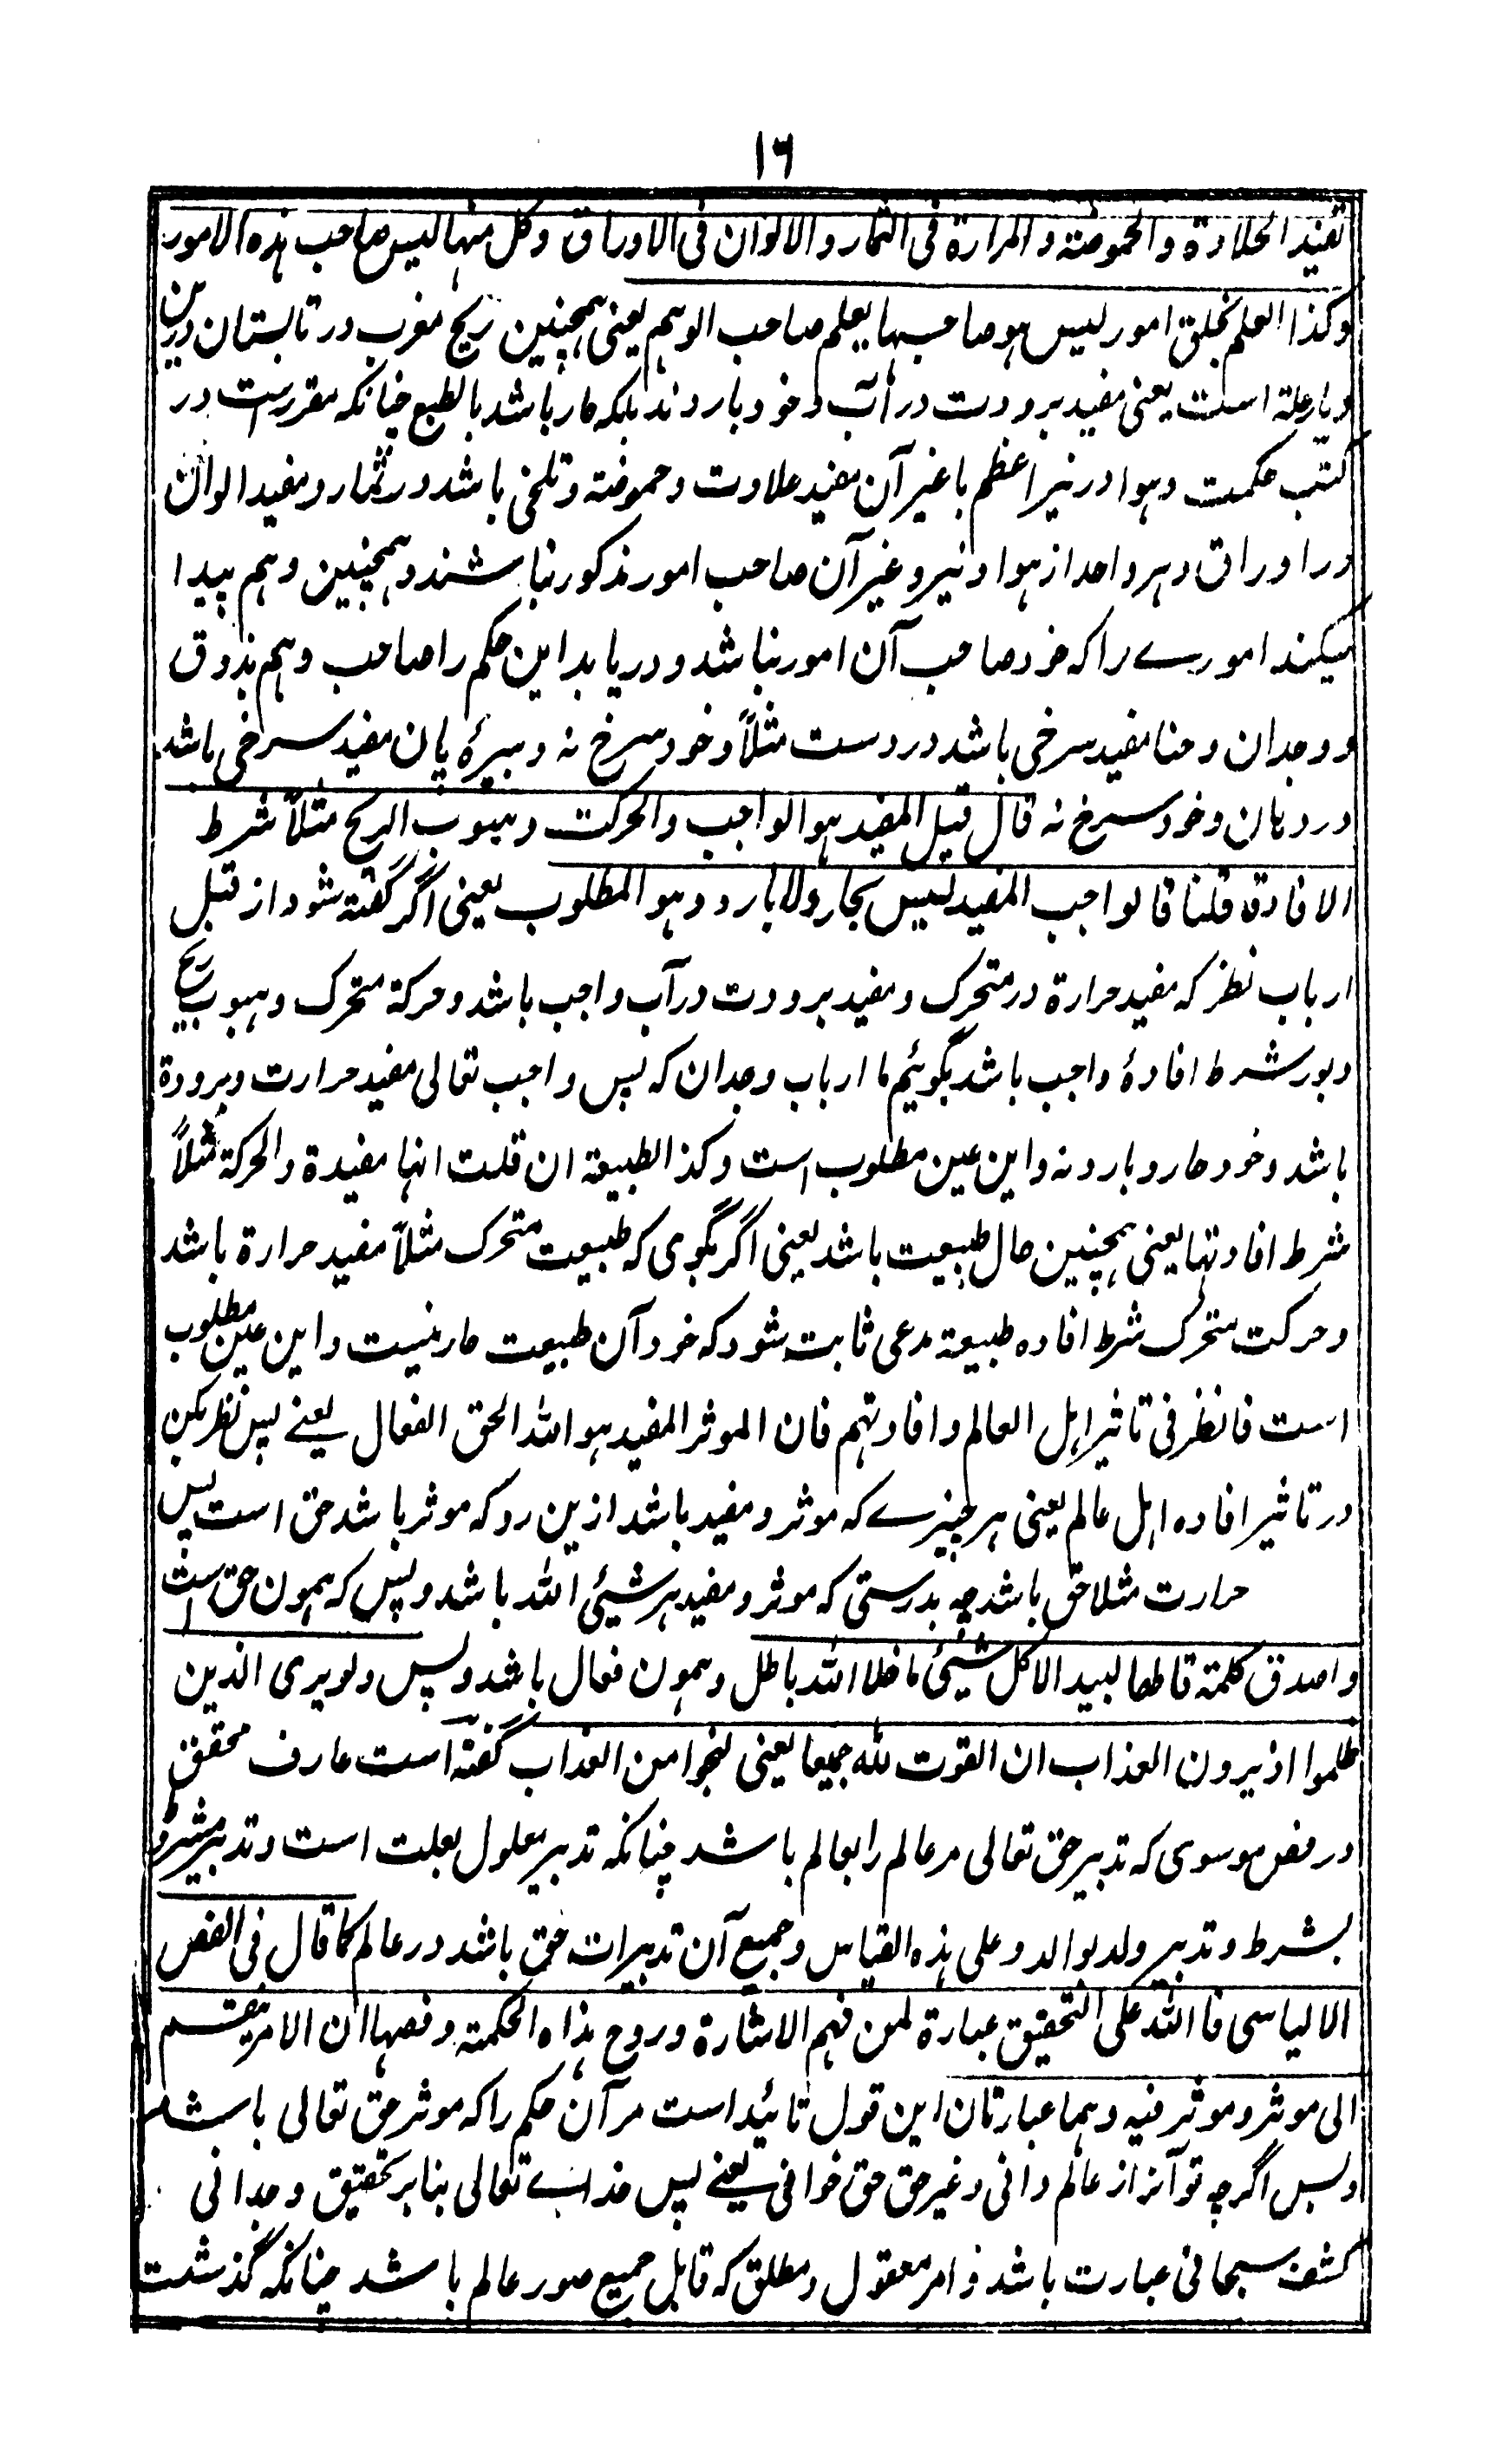 ١٦
تفيد الحلاوة والحموضة والمرارة فى الثمار والالوان فى الاوراق وكل منها ليس صاحب هذه الامور
وكذا العلم بخلق امور ليس هو صاحبها يعلم صاحب الوهم يعنى ہمچنین ریح مغرب در تابستان درین
دیار علة است یعنی مفید برودت در آب و خود بارد نه بلکه حار باشد بالطبع چنانکه مقررست در
کتب حکمت و ہوا و نیر اعظم با غیر آن مفید حلاوت و حموضة و تلخی باشد در ثمار و مفید الوان
در اوراق و ہر واحد از ہوا و نیر و غیر آن صاحب امور مذکور نباشند و ہمچنین وہم پیدا
میکند امورے را که خود صاحب آن امور نباشد و دریابد این حکم را صاحب وہم بذوق
و وجدان و حنا مفید سرخی باشد در دست مثلاً و خود سرخ نه و بیرۂ پان مفید سرخی باشد
در دہان و خود سرخ نه قال قیل المفید ہو الواجب والحرکت و ہبوب الریح مثلاً شرط
الافادة قلنا فالواجب المفید لیس بحار ولا بارد و ہو المطلوب یعنی اگر گفته شود از قبل
ارباب نظر که مفید حرارة در متحرک و مفید برودت در آب واجب باشد و حرکة متحرک و ہبوب ریح
دبور شرط افادۂ واجب باشد بگوئیم ما ارباب وجدان که پس واجب تعالی مفید حرارت و برودة
باشد و خود حار و بارد نه و این عین مطلوب است وکذا الطبیعة ان قلت انها مفیدة والحرکة مثلاً
شرط افادتها یعنی ہمچنین حال طبیعت باشد یعنی اگر بگوی که طبیعت متحرک مثلاً مفید حرارة باشد
و حرکت متحرک شرط افاده طبیعة مدعی ثابت شود که خود آن طبیعت حار نیست و این عین مطلوب
است فانظر فی تاثیر اہل العالم وافادتهم فان الموثر المفید ہو الله الحق الفعال یعنے پس نظر بکن
در تاثیر افاده اہل عالم یعنی ہر چیزے که موثر و مفید باشد ازین رو که موثر باشد حق است پس
حرارت مثلا حق باشد چه بدرستی که موثر و مفید ہر شیئی الله باشد و بس که ہمون حق است
واصدق کلمة قاطعا لبید الا کل شیئ ما خلا الله باطل و ہمون فعال باشد و بس ولو یری الذین
ظلموا اذ یرون العذاب ان القوت لله جمیعا یعنی لنجوا من العذاب گفته است عارف محقق
در فص موسوی که تدبیر حق تعالی مر عالم را بعالم باشد چنانکه تدبیر معلول بعلت است و تدبیر مشروط
بشرط و تدبیر ولد بوالد و علی هذه القیاس و جمیع آن تدبیرات حق باشد در عالم کما قال فی الفص
الالیاسی فا الله علی التحقیق عبارة لمن فهم الاشارة وروح هذه الحکمة وفصها ان الامر ینقسم
الی موثر وموثر فیه وهما عبارتان این قول تائید است مر آن حکم را که موثر حق تعالی باشد
و بس اگرچه تو آنرا از عالم دانی و غیر حق حق خوانی یعنے پس خداے تعالی بنابر تحقیق وجدانی
کشف سبحانی عبارت باشد ز امر معقول و مطلق که قابل جمیع صور عالم باشد چنانکه گذشت